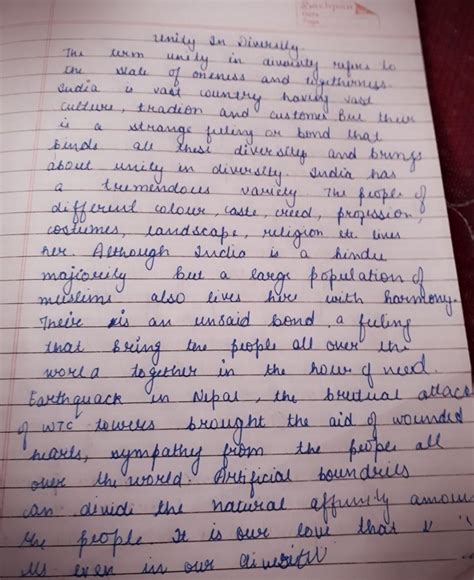 Date
Page
Unity In Diversity
The term unity in diversity refers to
the state of oneness and togetherness.
India is vast country having vast
culture, tradion and customes But their
is a strange feeling or bond that
binds all these diversity and brings
about unity in diversity. India has
a tremendous variety The people of
different colour, caste, creed, profession,
costumes, landscape, religion etc lives
her. Although India is a hindu
majiority but a large population of
muslims also lives hire with harmony.
Their is an unsaid bond, a feeling
that bring the people all over the
world together in the hour of need.
Earthquack in Nepal, the bruetual attack
of WTC towers brought the aid of wounded
hearts, sympathy from the people all
over the world. Artificial boundries
can divide the natural affinity among
the people. It is our love that
us even in our